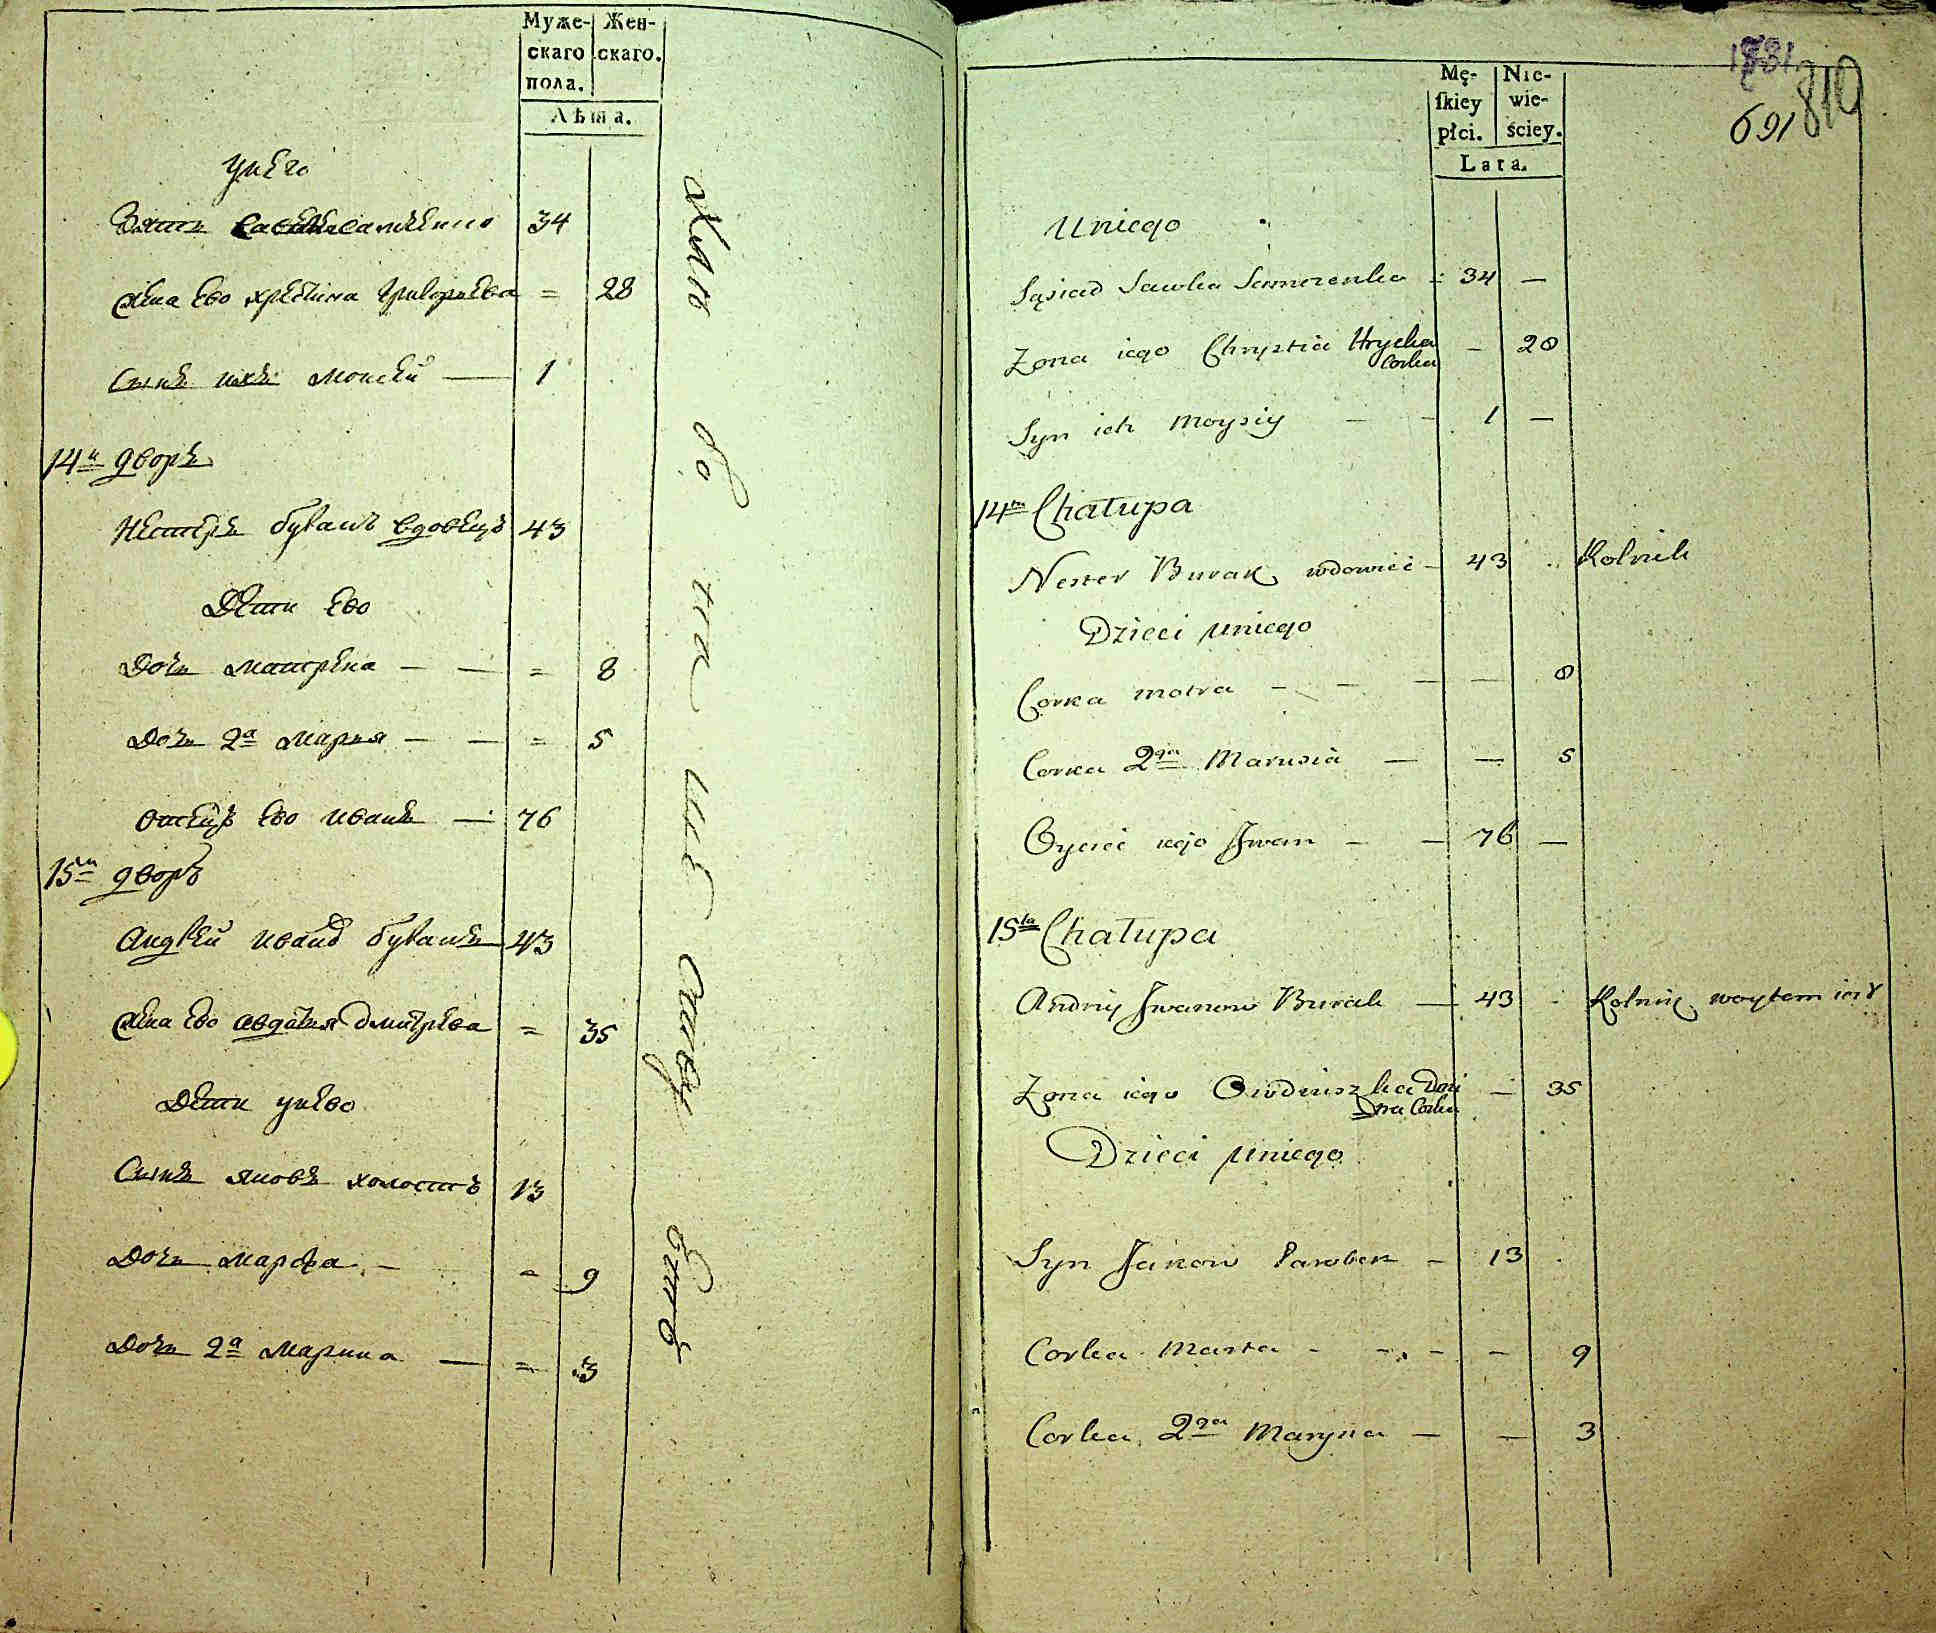 Муже-
скаго
пола.
Жен-
скаго.
Лѣта.
унего
Зять Савка Самиенко 34
Жена Ево Христина Григорьева = 28
Сынъ ихъ Моисей — 1
14й дворъ
Нестеръ Буракъ вдовецъ 43
Дети Ево
Дочь Матрена — — = 8
Дочь 2а Марья — — = 5
Отецъ Ево Иванъ — 76
15й дворъ
Андрей Иванов Буракъ 43
Жена Ево Авдотья Дмитрева = 35
Дети унево
Сынъ Яковъ холостъ 13
Дочь Марфа — = 9
Дочь 2а Марина — = 3
Mę-
ſkiey
płci.
Nie-
wie-
ściey.
Lata.
1781
819
691
Uniego
Sąsiad Sawka Samozenko : 34 —
Zona iego Chrystia Hrycka
Corka — 28
Syn ich Moysiy — — 1 —
14ta Chałupa
Nester Burak wdowiec — 43 Rolnik
Dzieci uniego
Corka Motra — — — — 8
Corka 2ga Marusia — — 5
Oyciec iego Iwan — — 76 —
15ta Chałupa
Andriy Iwanow Burak — 43 Rolnik woytem iest
Zona iego Owdiuszka Dmi
tra Corka — 35
Dzieci uniego
Syn Jakow Parobek — 13
Corka Marta — — — — 9
Corka 2ga Maryna — — 3